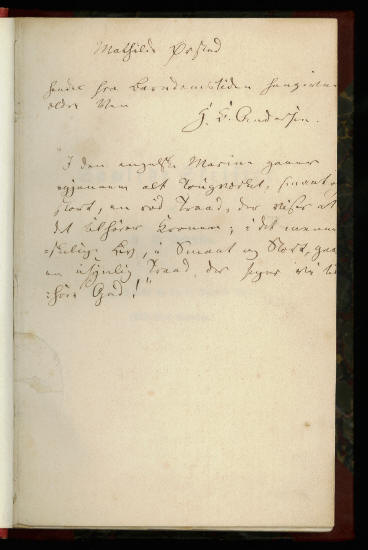 Mathilde Ørsted
hendes fra Barndomstiden hengivne
ældre Ven
H. C. Andersen.
"I den engelske Marine gaaer
igjennem alt Tougværket, smaat og
stort, en rød Traad, der viser at
det tilhører Kronen; i det menne-
skelige Liv, i Smaat og Stort, gaaer
en usynlig Traad, der siger vi til-
høre Gud!"